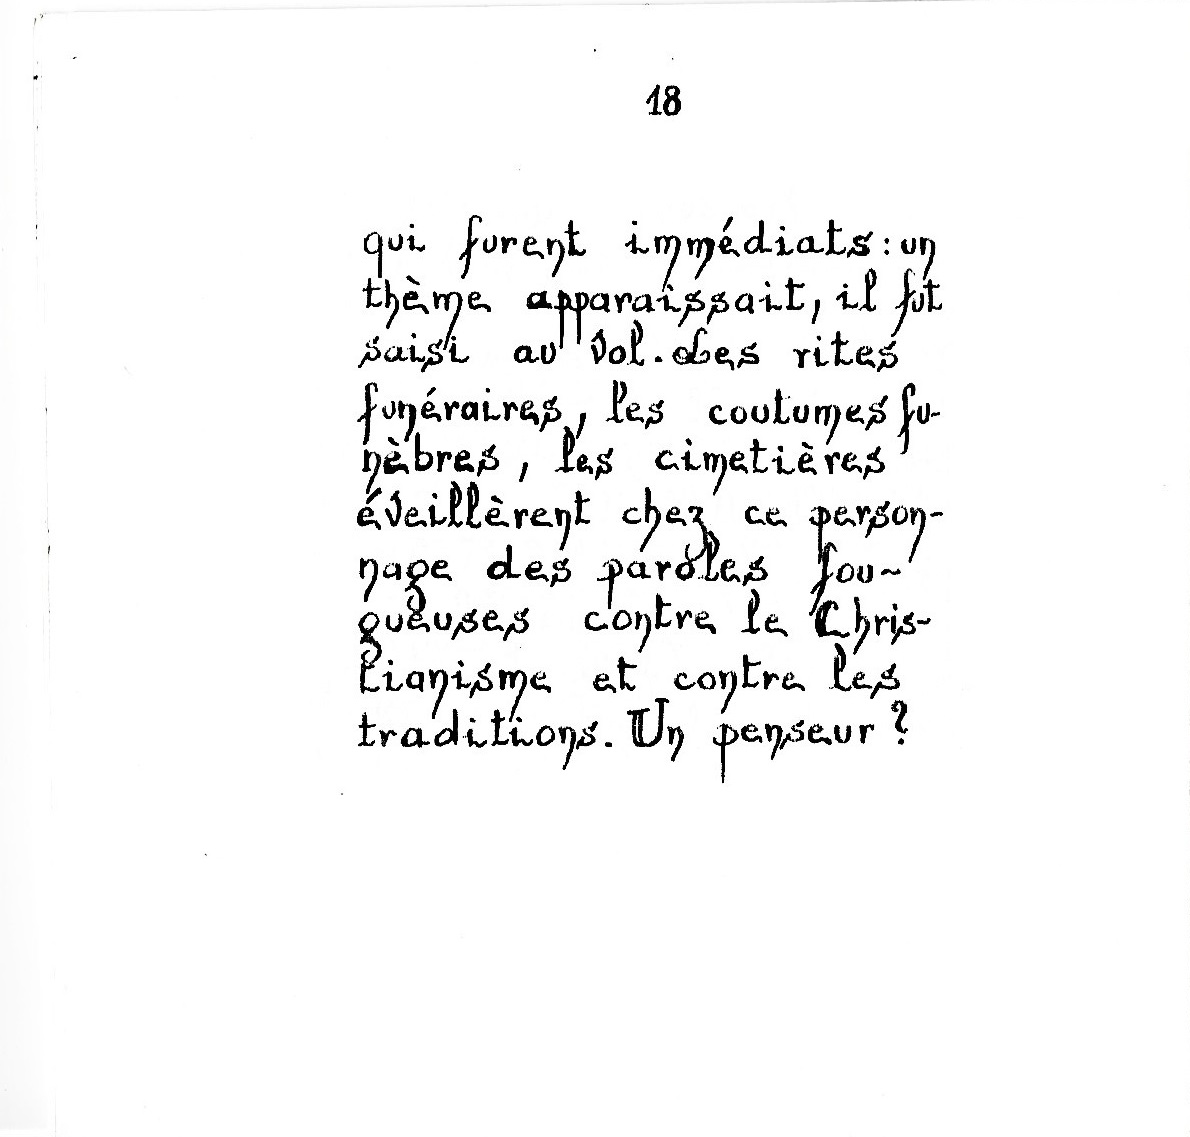 18
qui furent immédiats : un
thème apparaissait, il fut
saisi au vol. Les rites
funéraires, les coutumes fu-
nèbres, les cimetières
éveillèrent chez ce person-
nage des paroles fou-
gueuses contre le Chris-
tianisme et contre les
traditions. Un penseur ?